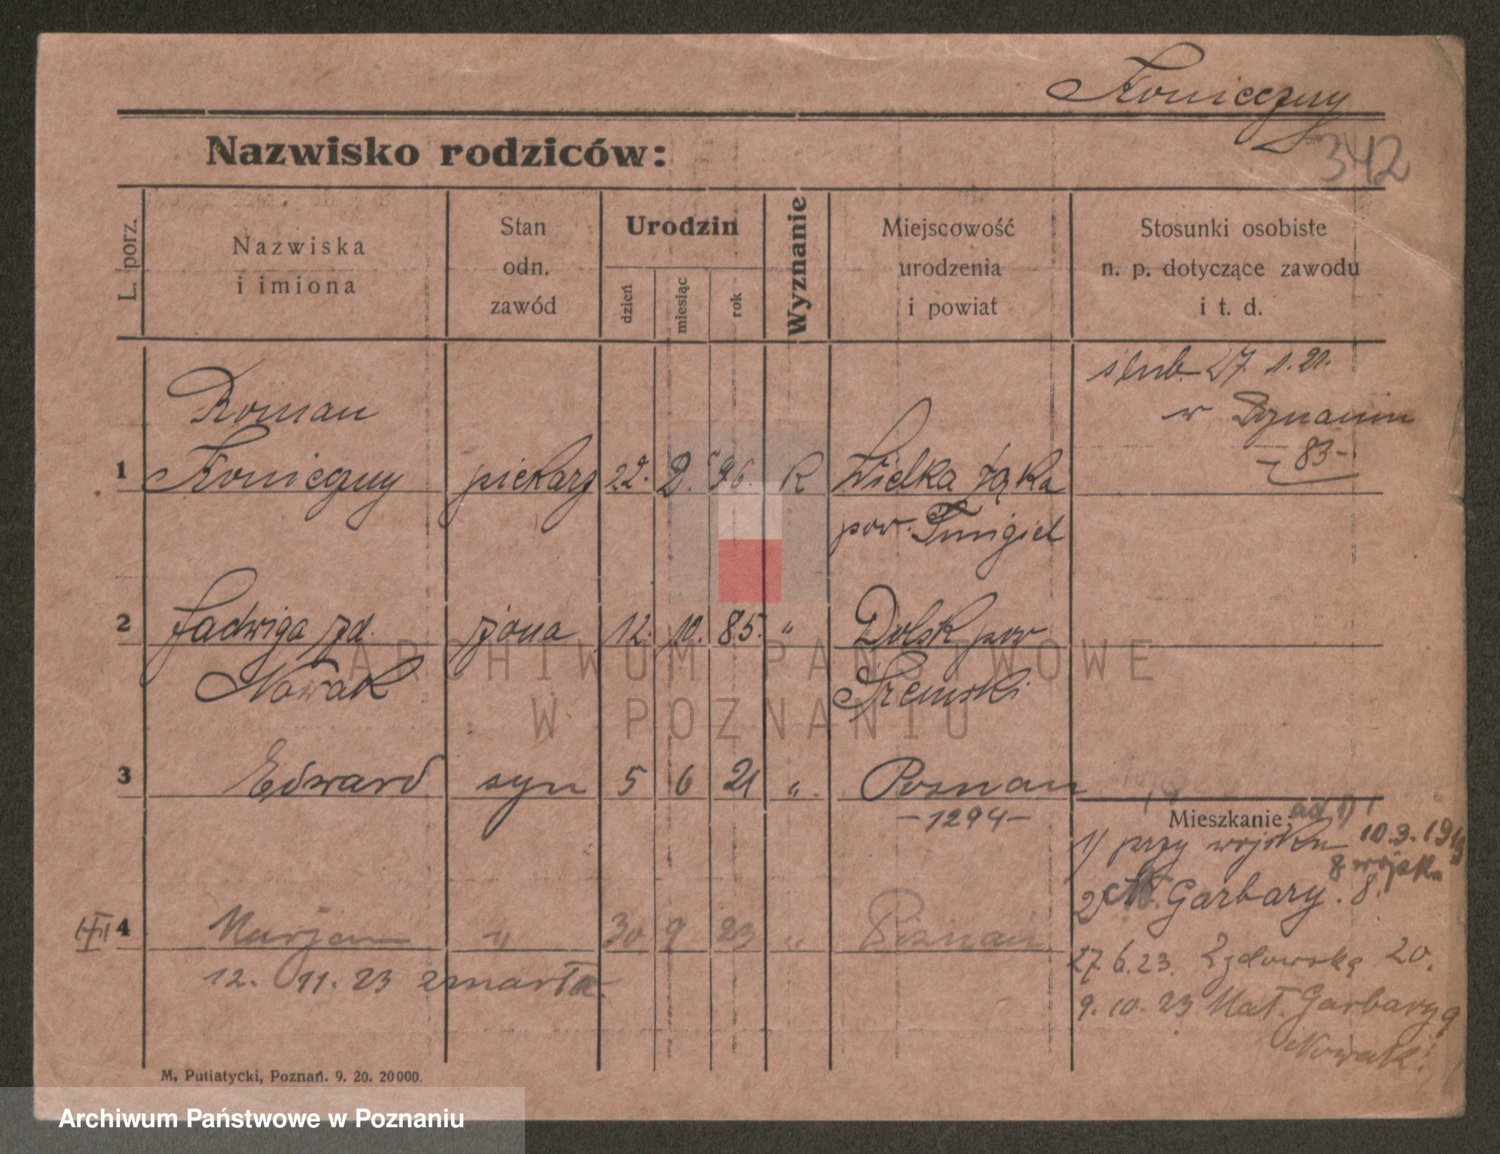 Konieczny
342
Nazwisko rodziców:
L. porz.
Nazwiska
i imiona
Stan
odn.
zawód
Urodzin
dzień
miesiąc
rok
Wyznanie
Miejscowość
urodzenia
i powiat
Stosunki osobiste
n. p. dotyczące zawodu
i t. d.
ślub 27 1. 21.
w Poznaniu
-83-
Roman
1 Konieczny piekarz 22. 2. 96. K Wielka Łąka
pow. Śmigiel
2 Jadwiga zd. żona 12. 10. 85. " Dolsk pow
Nowak Śremski
3 Edward syn 5 6 21 " Poznań
-1294-
Mieszkanie: ad 1)
1) przy wojsku 10.3.1919
z wojska
2) M. Garbary. 8.
4 Marjan " 30 9 23 " Poznań
12. 11. 23 zmarła.
27.6.23. Żydowska 20.
9. 10. 23 Mał. Garbary 9
Nowak.
M. Putiatycki, Poznań. 9. 20. 20000.
ARCHIWUM PAŃSTWOWE
W POZNANIU
Archiwum Państwowe w Poznaniu